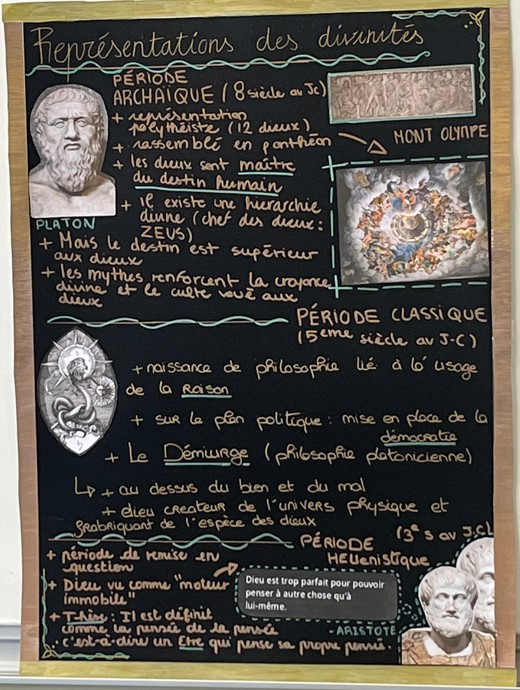 Représentations des divinités
PÉRIODE
ARCHAÏQUE (8 siècle av Jc)
+ représentation
polythéiste (12 dieux)
+ rassemblé en panthéon
MONT OLYMPE
+ les dieux sont maître
du destin humain
+ il existe une hierarchie
divine (chef des dieux :
ZEUS)
PLATON
+ Mais le destin est supérieur
aux dieux
+ les mythes renforcent la croyance
divine et le culte voué aux
dieux
PÉRIODE CLASSIQUE
(5eme siècle av J-C)
+ naissance de philosophie lié à la usage
de la Raison
+ sur le plan politique : mise en place de la
démocratie
+ Le Démiurge (philosophie platonicienne)
↳ + au dessus du bien et du mal
+ dieu createur de l'univers physique et
frabriquant de l'espèce des dieux
PÉRIODE (3e s av J.C)
HELLENistique
+ période de remise en
question
+ Dieu vu comme "moteur
immobile"
Dieu est trop parfait pour pouvoir
penser à autre chose qu'à
lui-même.
- ARISTOTE
+ : Il est définit
comme la pensée de la pensée
c'est-à-dire un Etre qui pense sa propre pensée.